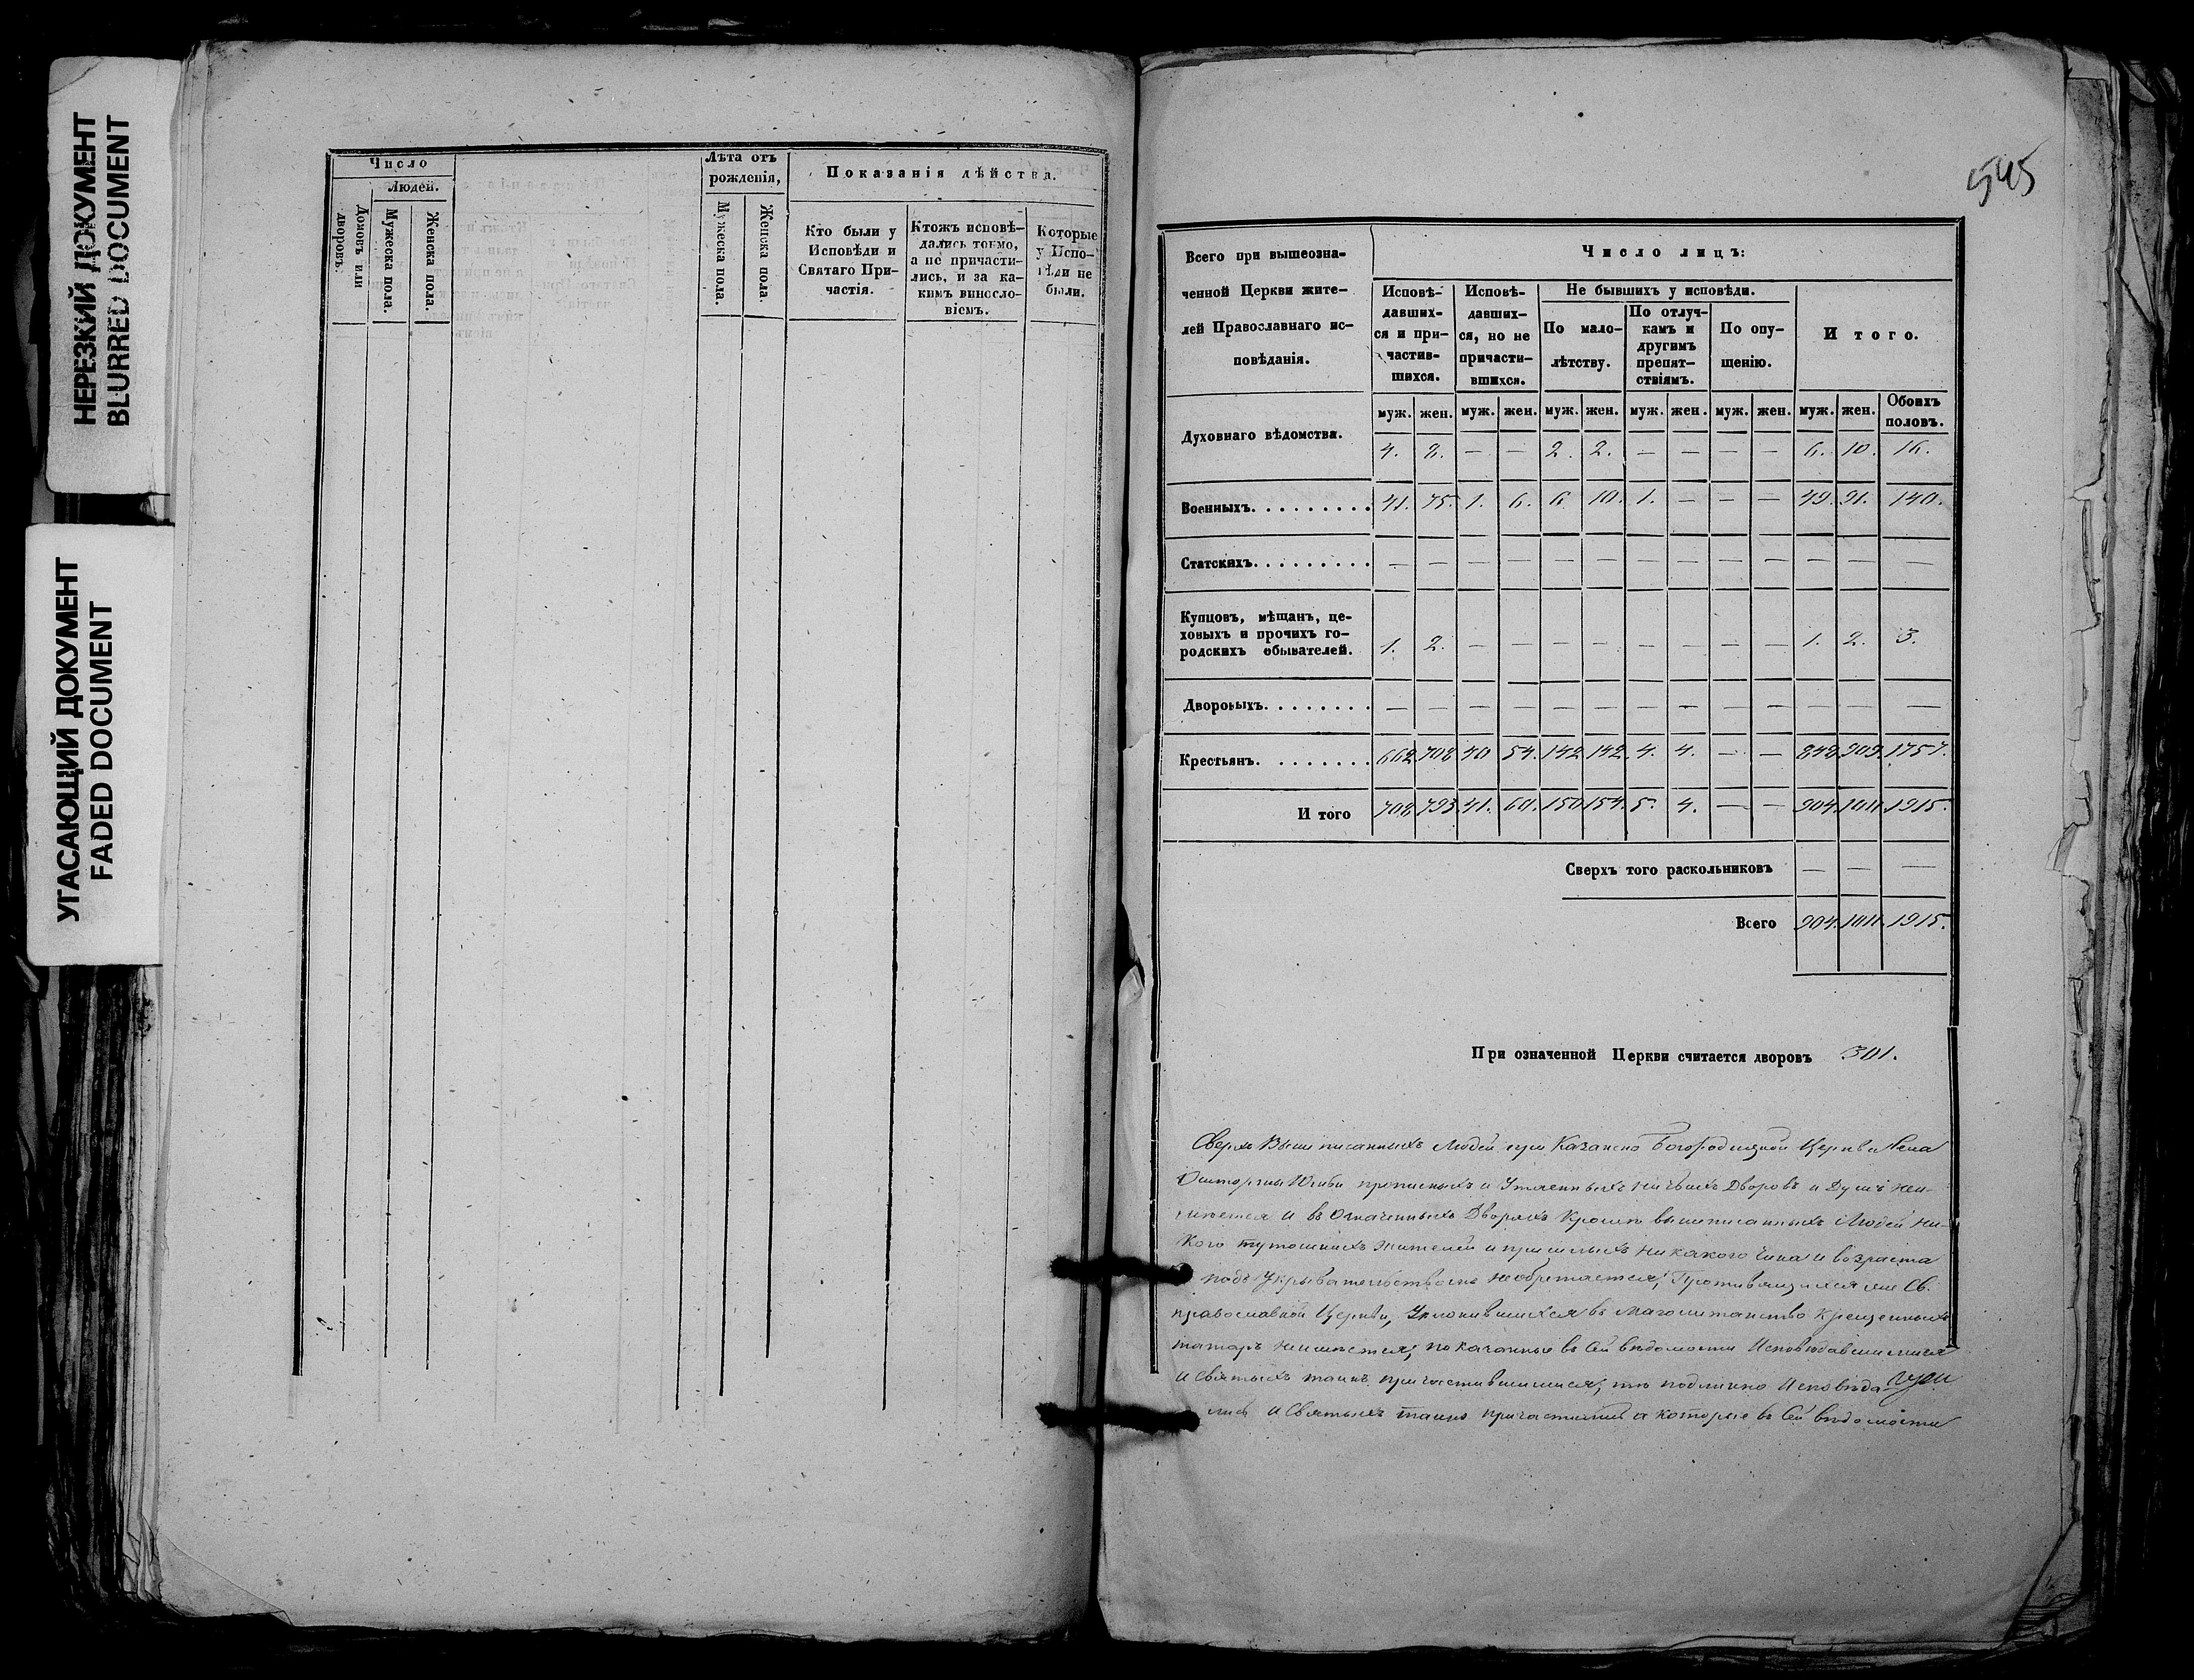 НЕРЕЗКИЙ ДОКУМЕНТ
BLURRED DOCUMENT
УГАСАЮЩИЙ ДОКУМЕНТ
FADED DOCUMENT
Число
Людей.
Домовъ или дворовъ.
Мужеска пола.
Женска пола.
Лѣта отъ рожденія,
Мужеска пола.
Женска пола.
Показанія дѣйства.
Кто были у
Исповѣди и
Святаго При-
частія.
Ктожъ исповѣ-
дались токмо,
а не причасти-
лись, и за ка-
кимъ винosло-
віемъ.
Которые
у Испо-
вѣди не
были.
545
Всего при вышеозна-
ченной Церкви жите-
лей Православнаго ис-
повѣданія.
Число лицъ:
Исповѣ-
давших-
ся и при-
частив-
шихся.
Исповѣ-
давших-
ся, но не
причасти-
вшихся.
Не бывшихъ у исповѣди.
По мало-
лѣтству.
По отлуч-
камъ и
другимъ
препят-
ствіямъ.
По опу-
щенію.
Итого.
муж. жен. муж. жен. муж. жен. муж. жен. муж. жен. муж. жен. Обоихъ половъ.
Духовнаго вѣдомства. 4. 8. — — 2. 2. — — — — 6. 10. 16.
Военныхъ. 41. 75. 1. 6. 6. 10. 1. — — — 49. 91. 140.
Статскихъ. — — — — — — — — — — — — —
Купцовъ, мѣщанъ, це-
ховыхъ и прочихъ го-
родскихъ обывателей. 1. 2. — — — — — — — — 1. 2. 3.
Дворовыхъ. — — — — — — — — — — — — —
Крестьянъ. 662. 708. 40. 54. 142. 142. 4. 4. — — 848. 908. 1757.
И того 708. 793. 41. 60. 150. 154. 5. 4. — — 904. 1011. 1915.
Сверхъ того раскольниковъ — — —
Всего 904. 1011. 1915.
При означенной Церкви считается дворовъ 301.
Сверхъ Вышеписанныхъ Людей при Казанско Богородицкой Церкви Села
прописныхъ и Утаенныхъ ничьихъ Дворовъ и Душъ неи-
мѣется и въ Означенныхъ Дворахъ Кромѣ вышеписанныхъ Людей ни-
кого тутошнихъ жителей и пришлыхъ никакого чина и возраста
подъ Укрывательствомъ необрѣтается; Противящихся Св.
православной Церкви, Уклонившихся въ Магометанство Крещенныхъ
татаръ неимѣется; показанные въ Сей вѣдомости Исповѣдавшимися
и Святыхъ таинъ причастившимися, тѣ подлинно Исповѣда-
лись и Святыхъ таинъ причастились а которые въ Сей вѣдомости